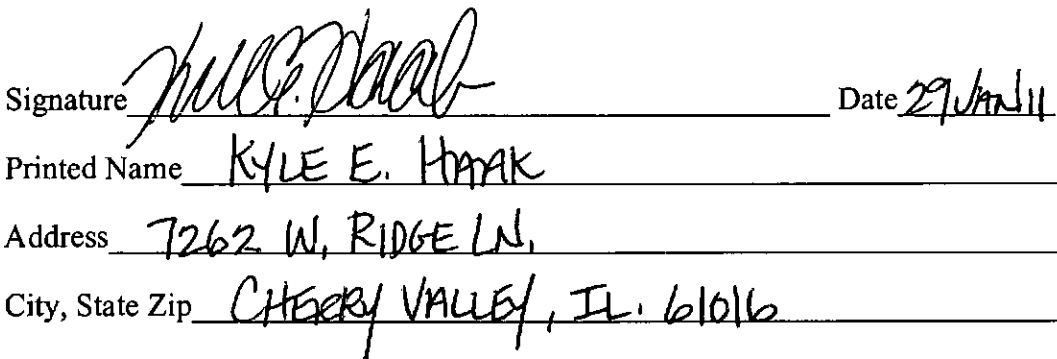 Signature Kyle E. Haak Date 29 JAN 11
Printed Name KYLE E. HAAK
Address 7262 W. RIDGE LN.
City, State Zip CHERRY VALLEY, IL. 61016